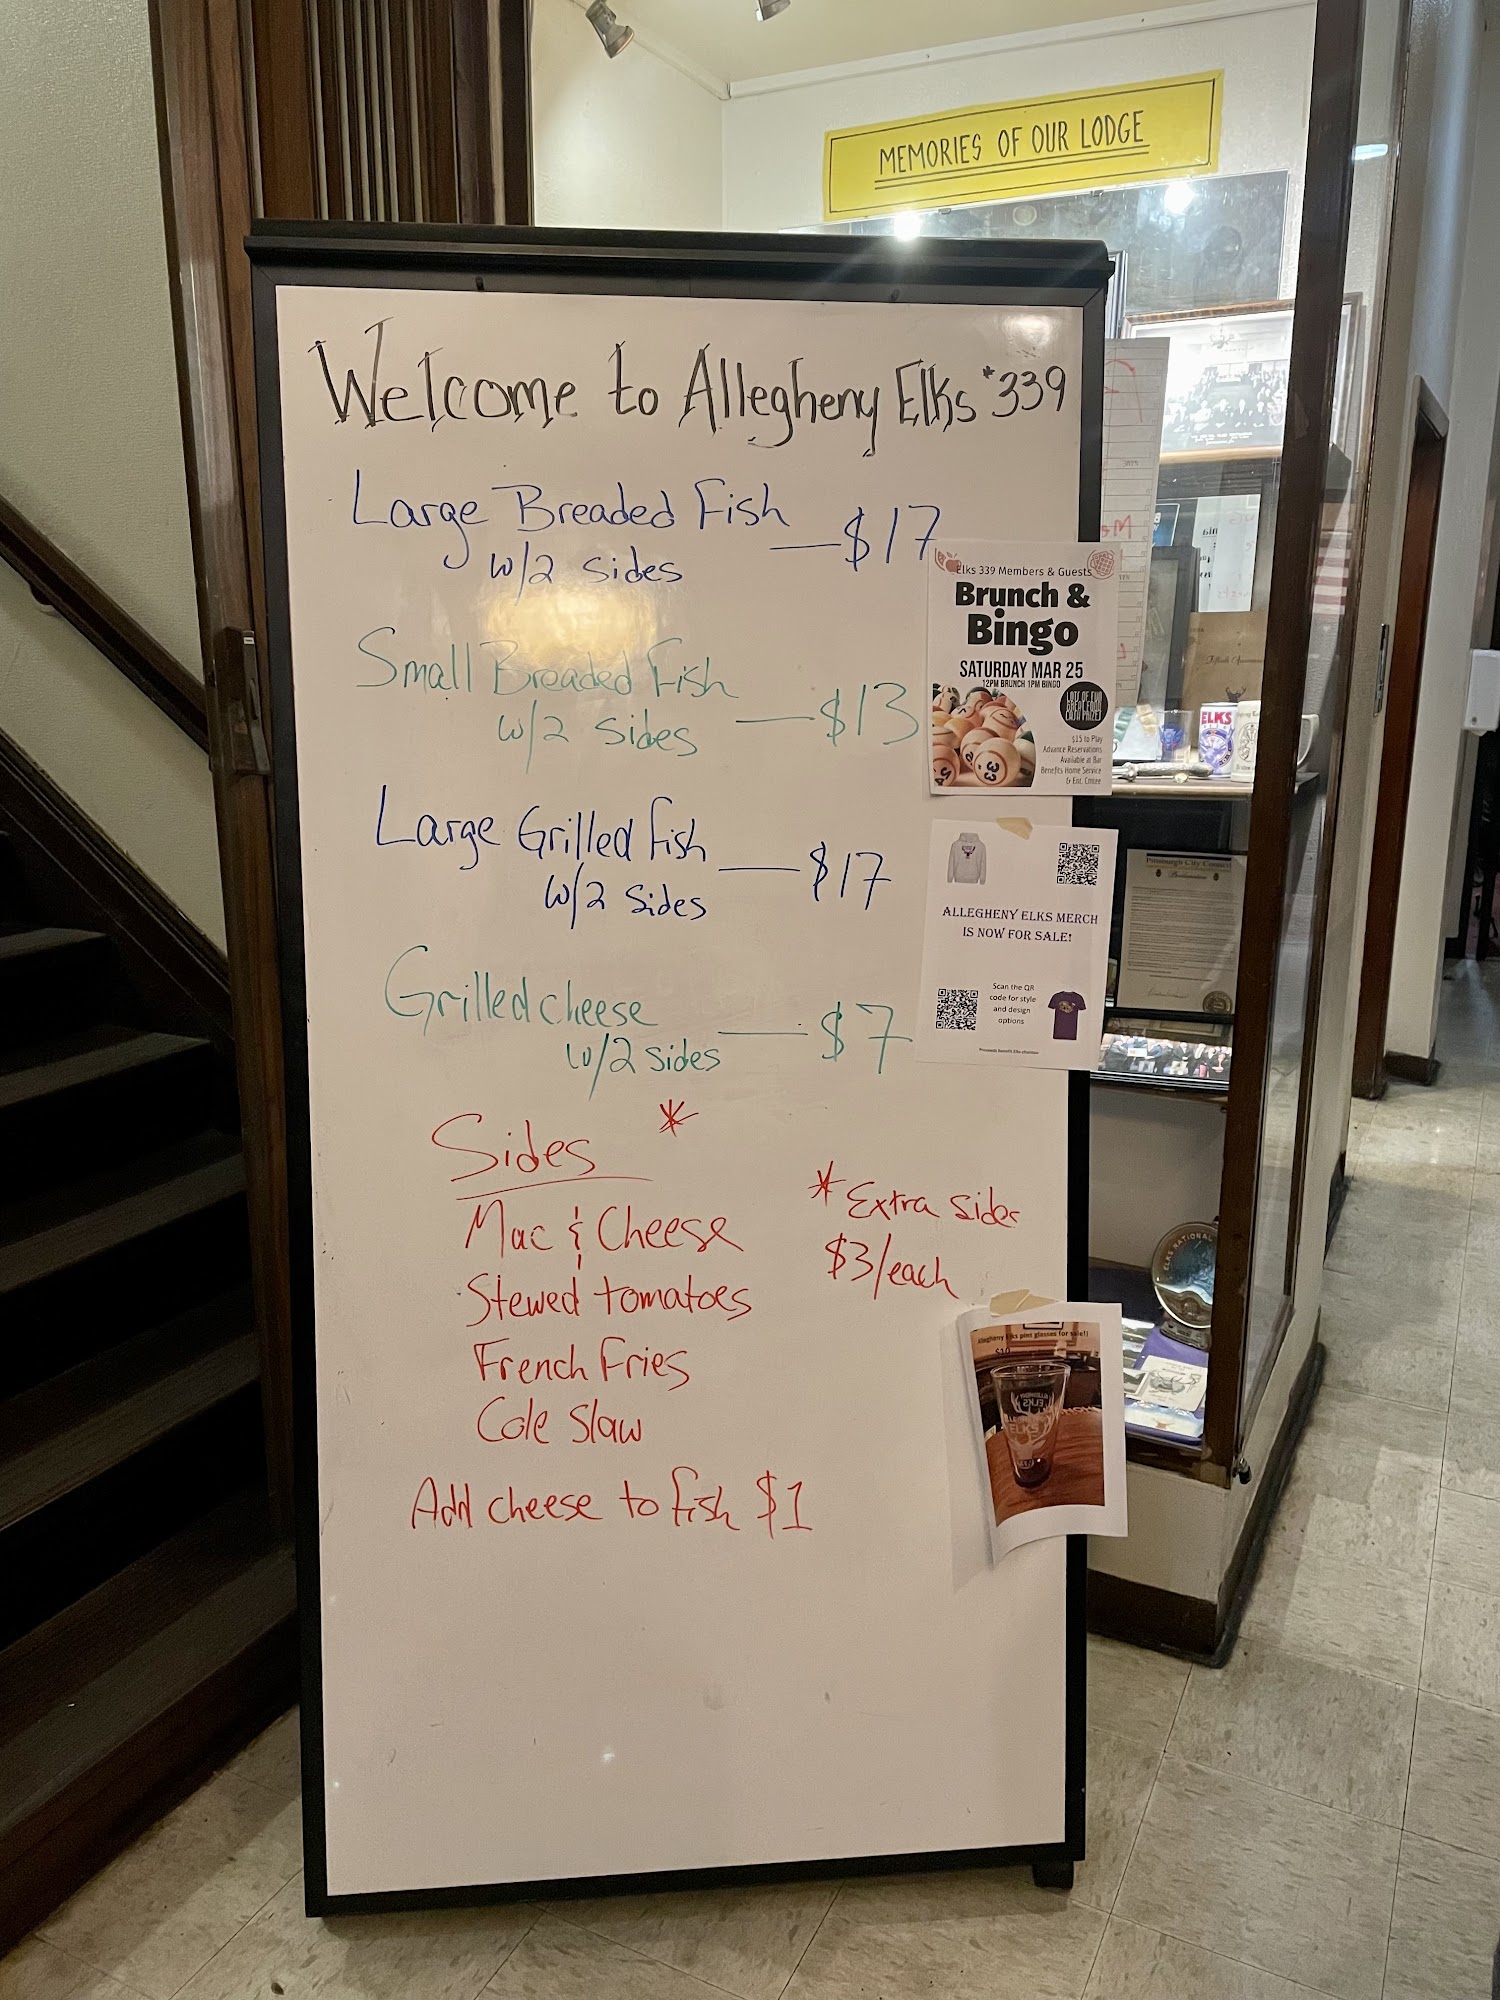 MEMORIES OF OUR LODGE
Welcome to Allegheny Elks #339
Large Breaded Fish
w/2 sides — $17
Small Breaded Fish
w/2 sides — $13
Large Grilled fish
w/2 sides — $17
Grilled cheese
w/2 sides — $7
Sides *
Mac & Cheese
Stewed tomatoes
French Fries
Cole Slaw
* Extra sides
$3/each
Add cheese to fish $1
Elks 339 Members & Guests
Brunch &
Bingo
SATURDAY MAR 25
12PM BRUNCH 1PM BINGO
$15 to Play
Advance Reservations
Available at Bar
Benefits Home Service
& Ent. Cmtee
33
ALLEGHENY ELKS MERCH
IS NOW FOR SALE!
Scan the QR
code for style
and design
options
Allegheny Elks pint glasses for sale!!
$10
ELKS
ELKS
Pittsburgh City Council
Proclamation
ELKS NATIONAL